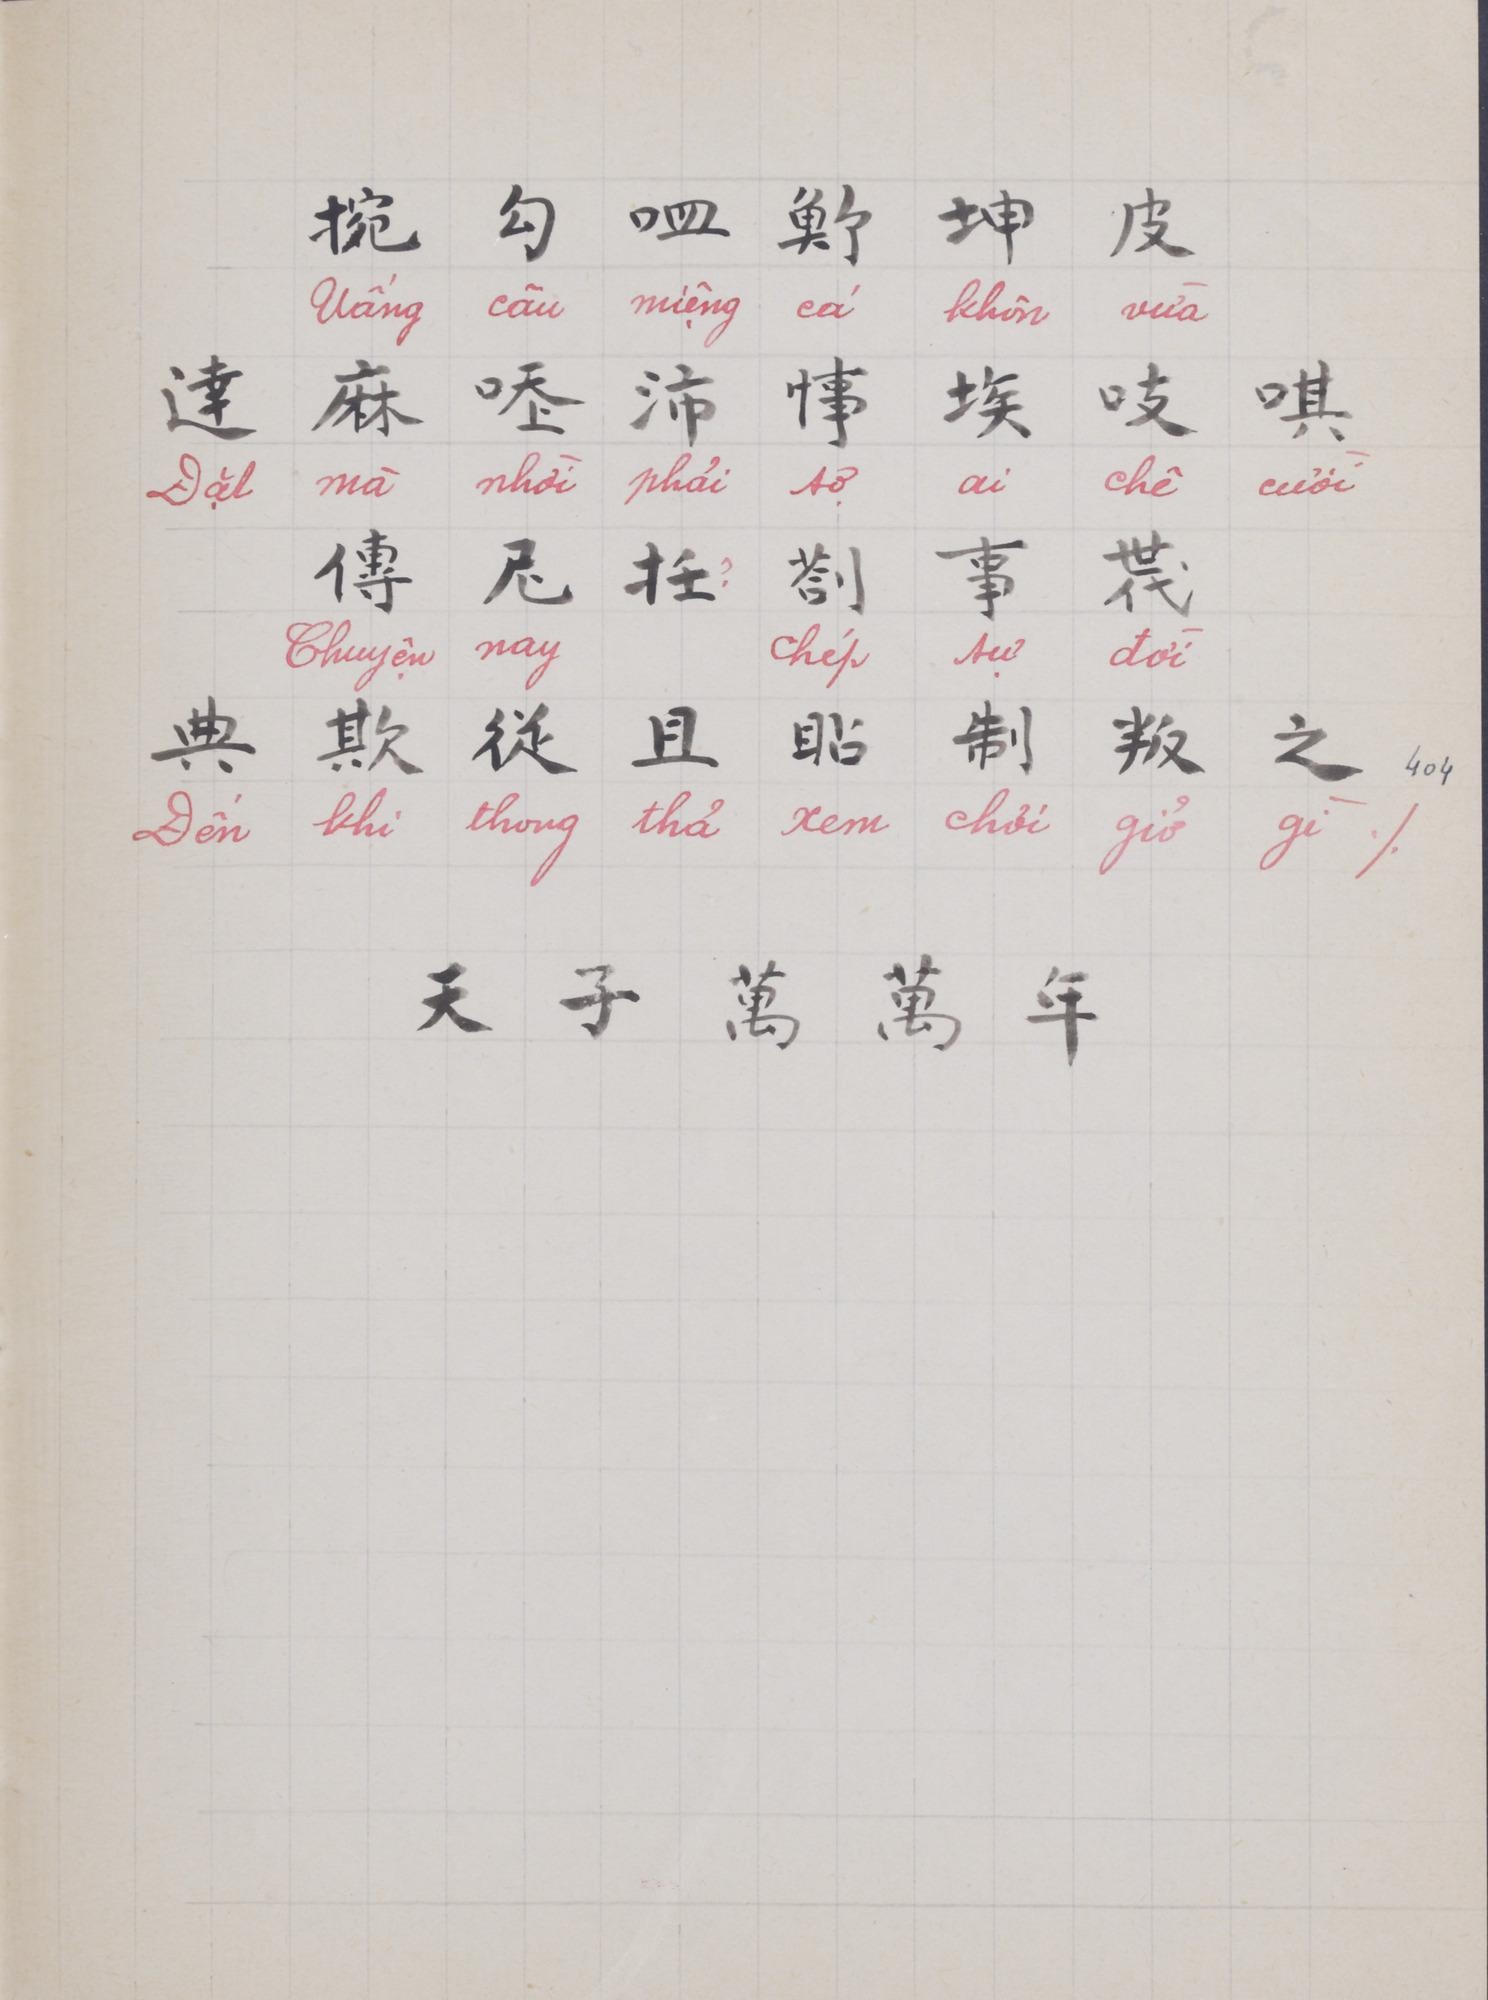 捥 勾 𠰃 𩵽 坤 皮
Uấng câu miệng cá khôn vừa
達 麻 唑 沛 𢜝 埃 吱 唭
Đặt mà nhời phải sợ ai chê cười
傳 尼 抂? 劄 事 𠁀
Chuyện nay chép sự đời
典 欺 從 且 䀡 制 叛 之 404
Đến khi thong thả xem chơi giở gì ./.
天 子 萬 萬 年